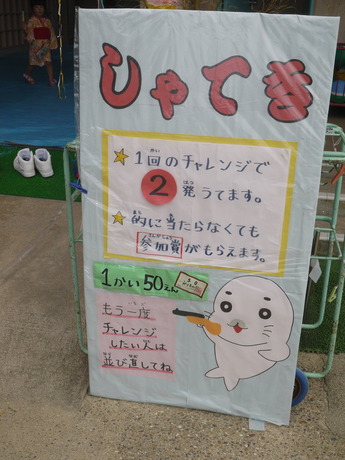 しゃてき
☆1回のチャレンジで
2発うてます。
☆的に当たらなくても
参加賞がもらえます。
1かい50えん
もう一度
チャレンジ
したい人は
並び直してね